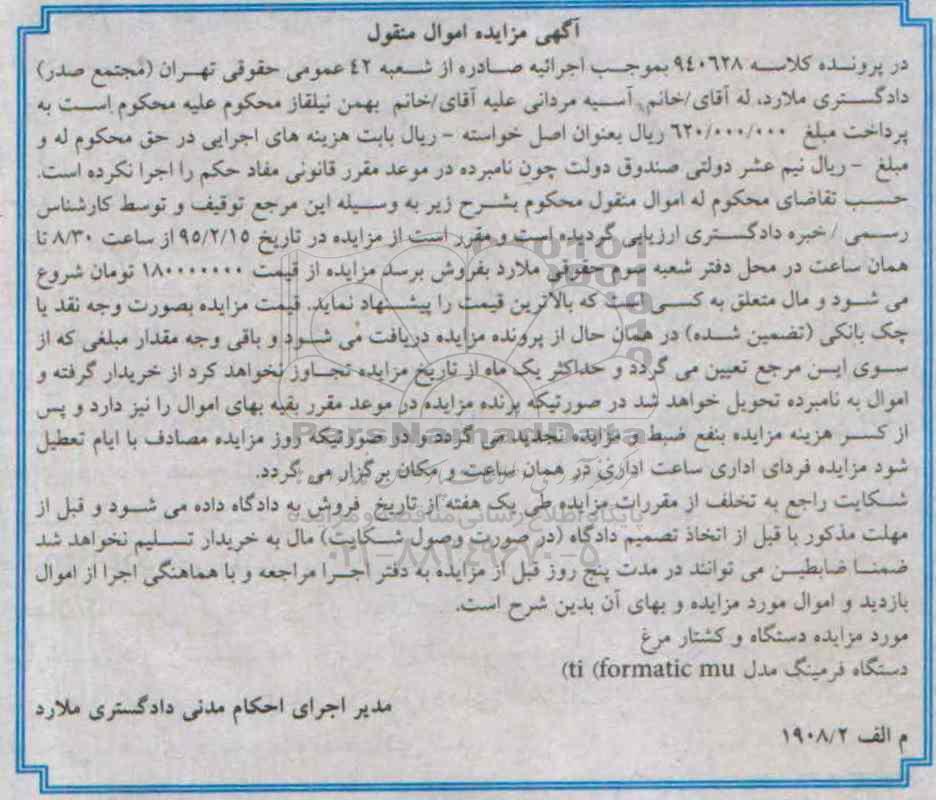 آگهی مزایده اموال منقول
در پرونده کلاسه ۹٤۰٦۲۸ بموجب اجرائیه صادره از شعبه ٤۲ عمومی حقوقی تهران (مجتمع صدر)
دادگستری ملارد، له آقای/خانم آسیه مردانی علیه آقای/خانم بهمن نیلقاز محکوم علیه محکوم است به
پرداخت مبلغ ٦۲۰/۰۰۰/۰۰۰ ریال بعنوان اصل خواسته - ریال بابت هزینه های اجرایی در حق محکوم له و
مبلغ - ریال نیم عشر دولتی صندوق دولت چون نامبرده در موعد مقرر قانونی مفاد حکم را اجرا نکرده است.
حسب تقاضای محکوم له اموال منقول محکوم بشرح زیر به وسیله این مرجع توقیف و توسط کارشناس
رسمی / خبره دادگستری ارزیابی گردیده است و مقرر است از مزایده در تاریخ ۹٥/۲/۱٥ از ساعت ۸/۳۰ تا
همان ساعت در محل دفتر شعبه سوم حقوقی ملارد بفروش برسد مزایده از قیمت ۱۸۰۰۰۰۰۰۰ تومان شروع
می شود و مال متعلق به کسی است که بالاترین قیمت را پیشنهاد نماید. قیمت مزایده بصورت وجه نقد یا
چک بانکی (تضمین شده) در همان حال از پرونده مزایده دریافت می شود و باقی وجه مقدار مبلغی که از
سوی این مرجع تعیین می گردد و حداکثر یک ماه از تاریخ مزایده تجاوز نخواهد کرد از خریدار گرفته و
اموال به نامبرده تحویل خواهد شد در صورتیکه برنده مزایده در موعد مقرر بقیه بهای اموال را نیز دارد و پس
از کسر هزینه مزایده بنفع ضبط و مزایده تجدید می گردد و در صورتیکه روز مزایده مصادف با ایام تعطیل
شود مزایده فردای اداری ساعت اداری در همان ساعت و مکان برگزار می گردد.
شکایت راجع به تخلف از مقررات مزایده طی یک هفته از تاریخ فروش به دادگاه داده می شود و قبل از
مهلت مذکور با قبل از اتخاذ تصمیم دادگاه (در صورت وصول شکایت) مال به خریدار تسلیم نخواهد شد
ضمنا ضابطین می توانند در مدت پنج روز قبل از مزایده به دفتر اجرا مراجعه و با هماهنگی اجرا از اموال
بازدید و اموال مورد مزایده و بهای آن بدین شرح است.
مورد مزایده دستگاه و کشتار مرغ
دستگاه فرمینگ مدل ti (formatic mu)
مدیر اجرای احکام مدنی دادگستری ملارد
م الف ۱۹۰۸/۲
ParsNamadData
پایگاه اطلاع رسانی مناقصه و مزایده
۰۲۱-۸۸۳٤۹٦۷۰-٥